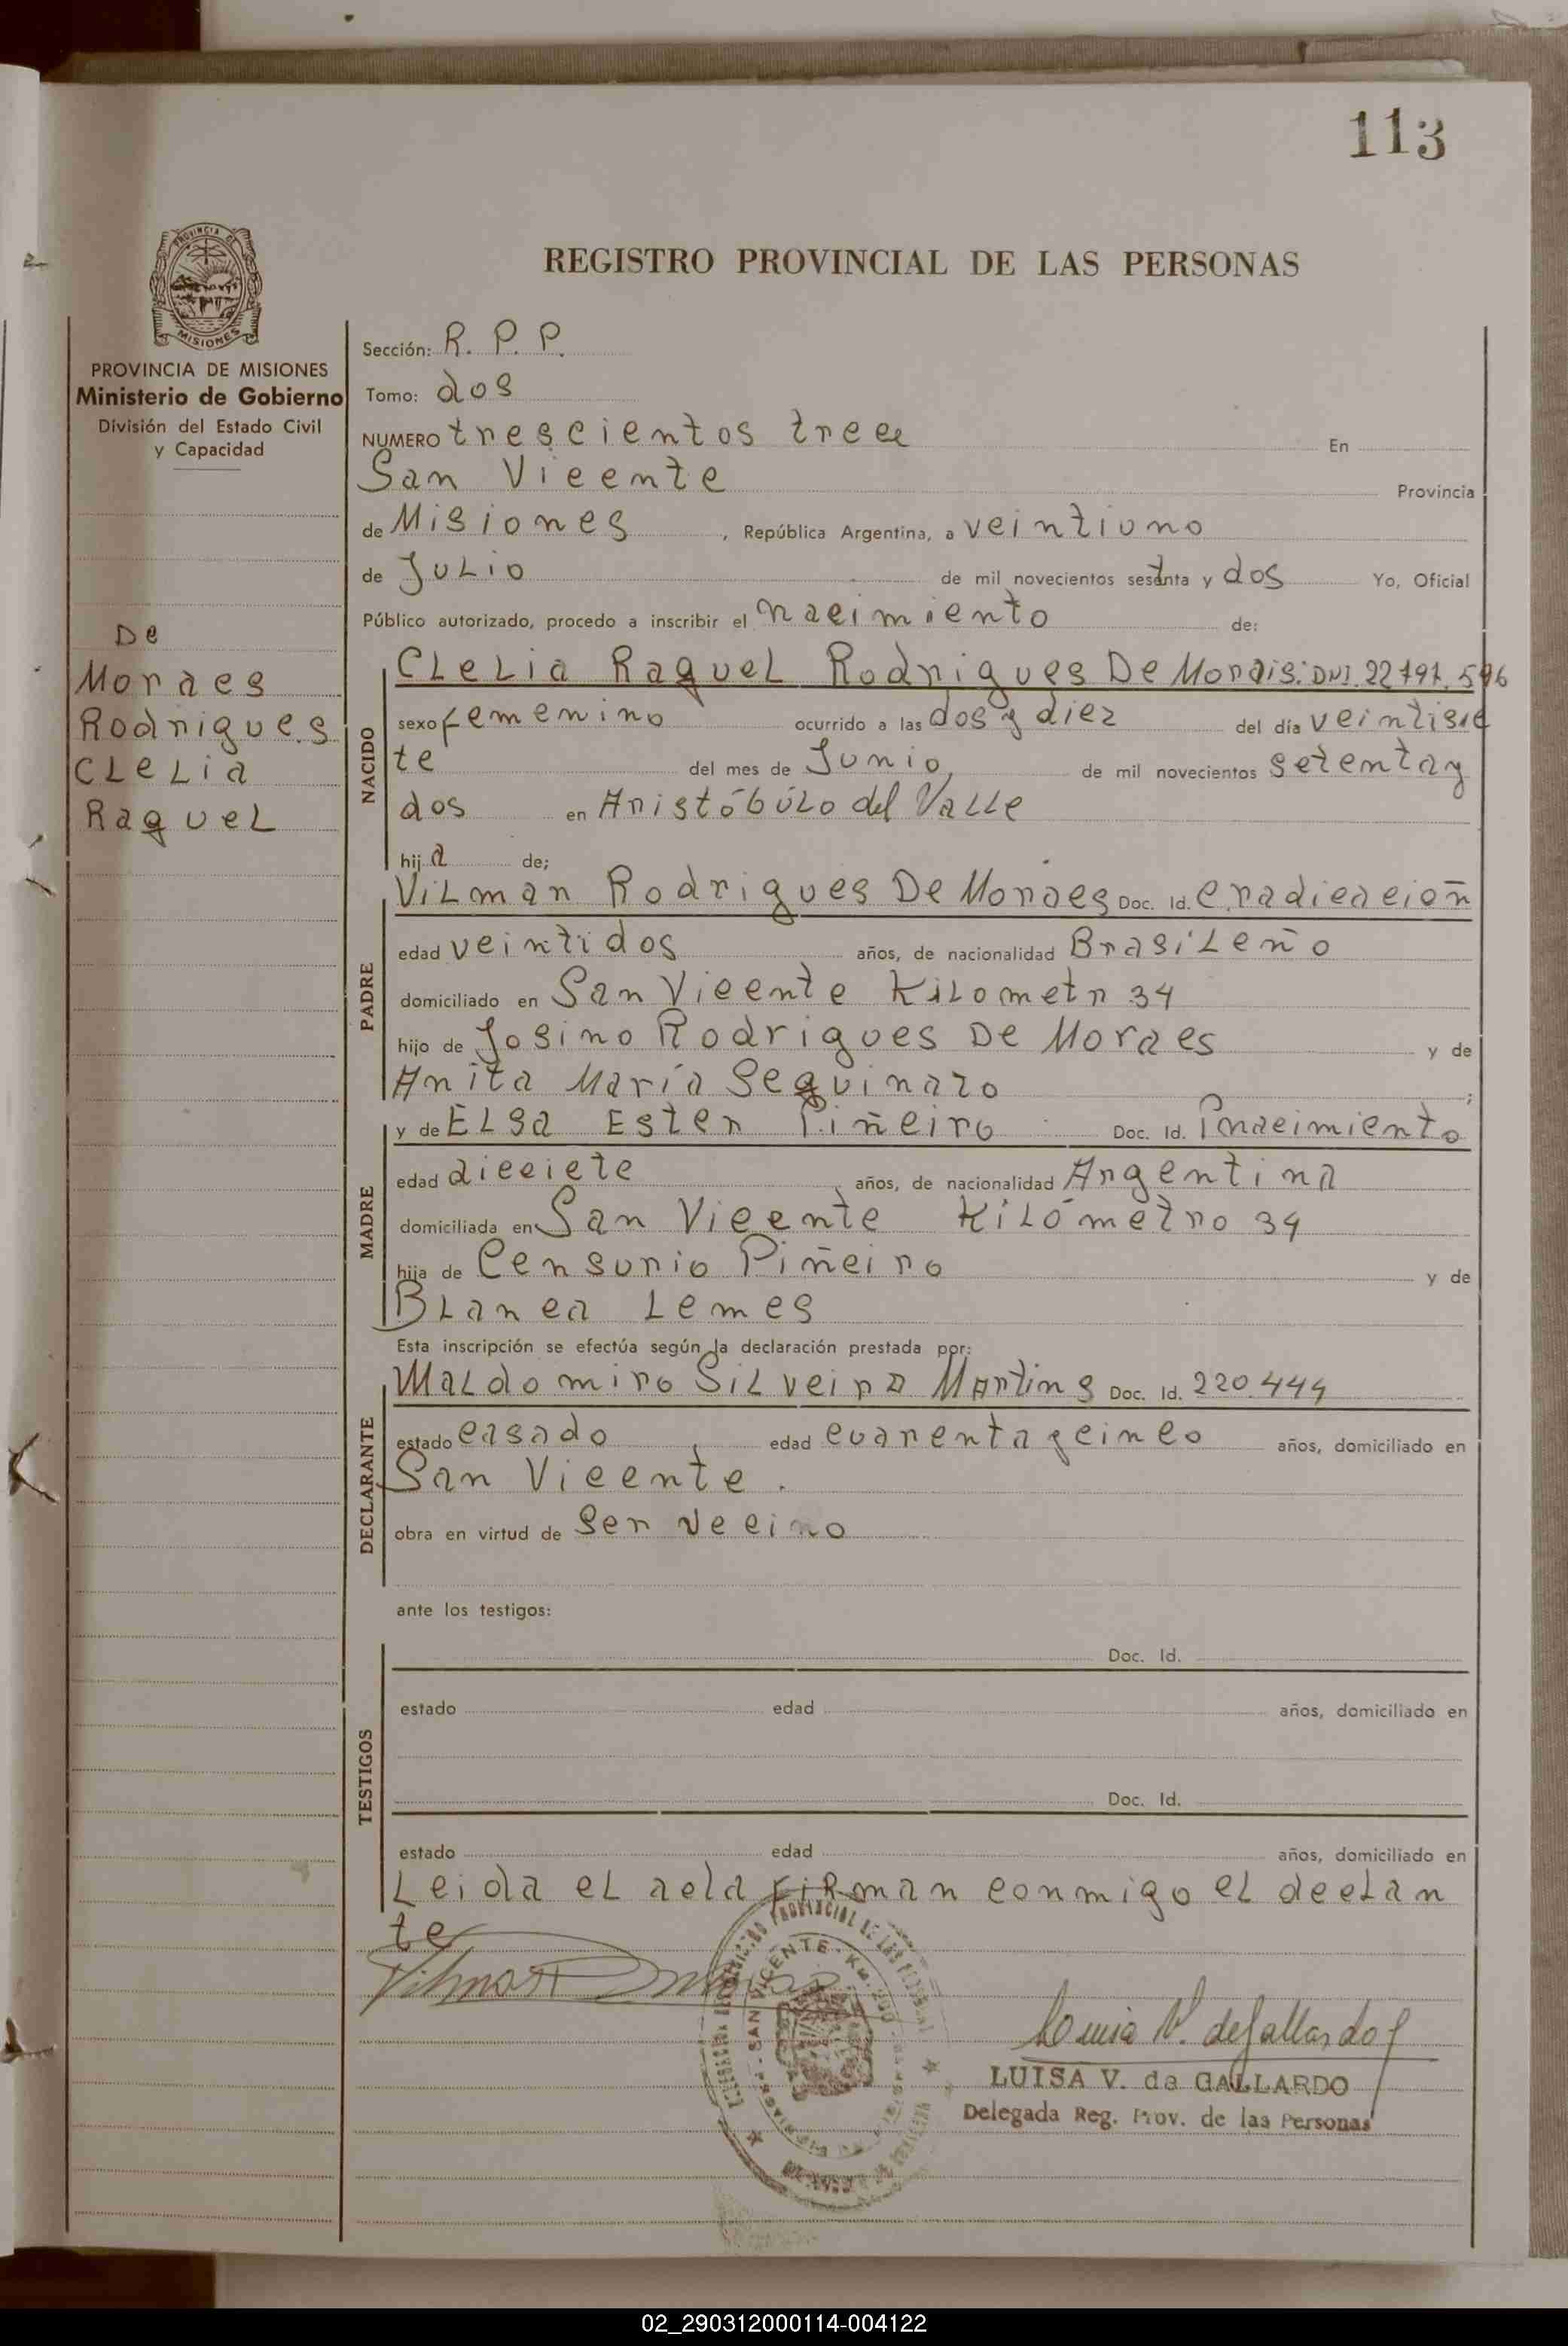 113
REGISTRO PROVINCIAL DE LAS PERSONAS
PROVINCIA DE MISIONES
Ministerio de Gobierno
División del Estado Civil
y Capacidad
De
Moraes
Rodrigues
CLeLia
RaqueL
Sección: R. P. P.
Tomo: dos
NUMERO trescientos trece En
San Vicente Provincia
de Misiones, República Argentina, a veintiuno
de JULio de mil novecientos setenta y dos Yo, Oficial
Público autorizado, procedo a inscribir el nacimiento de:
NACIDO
CLeLia RaqueL Rodrigues De Morais: DNI. 22.797.596
sexo femenino ocurrido a las dos y diez del día veintisie
te del mes de Junio, de mil novecientos setenta y
dos en Aristóbúlo del Valle
hija de;
PADRE
ViLmar Rodrigues De Moraes Doc. Id. C. radicación
edad veintidos años, de nacionalidad BrasiLeño
domiciliado en San Vicente KiLometr 34
hijo de Josino Rodrigues De Moraes y de
Anita María Sequinazo;
MADRE
y de ELsa Ester Piñeiro Doc. Id. P.nacimiento
edad dieciete años, de nacionalidad Argentina
domiciliada en San Vicente KiLómetro 34
hija de Censurio Piñeiro y de
BLanca Lemes
Esta inscripción se efectúa según la declaración prestada por:
DECLARANTE
WaLdomiro SiLveira Martins Doc. Id. 220.444
estado casado, edad cuarenta y cinco años, domiciliado en
San Vicente.
obra en virtud de Ser vecino
ante los testigos:
TESTIGOS
Doc. Id.
estado edad años, domiciliado en
Doc. Id.
estado edad años, domiciliado en
Leida eL acta FiRman conmigo eL decLan
te
SAN VICENTE - KM.
Luisa V. de Gallardo
LUISA V. de GALLARDO
Delegada Reg. Prov. de las Personas
02_290312000114-004122